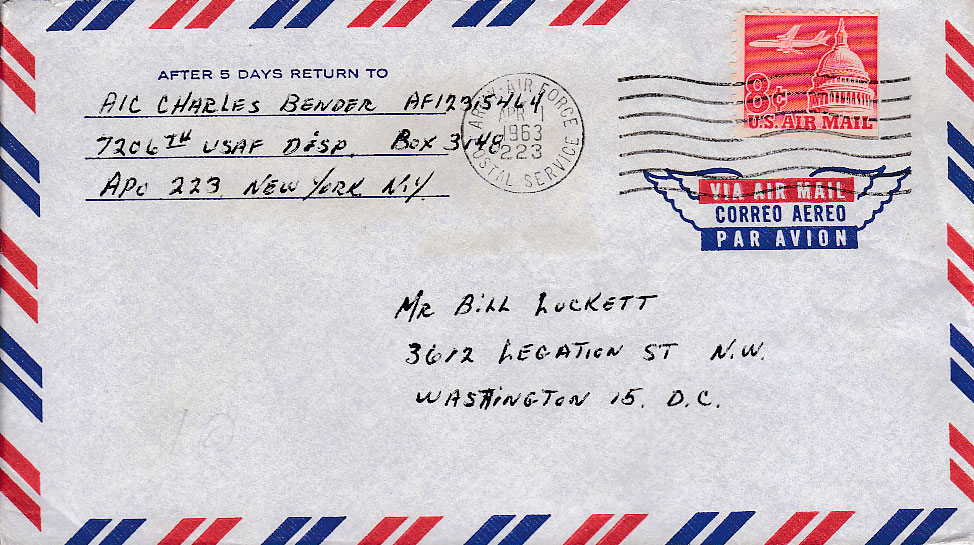 AFTER 5 DAYS RETURN TO
A1C CHARLES BENDER AF12315464
7206TH USAF DISP. BOX 3148
APO 223 NEW YORK N.Y.
ARMY-AIR FORCE
APR 1
1963
223
POSTAL SERVICE
8¢
U.S. AIR MAIL
VIA AIR MAIL
CORREO AEREO
PAR AVION
MR BILL LUCKETT
3612 LEGATION ST N.W.
WASHINGTON 15. D.C.